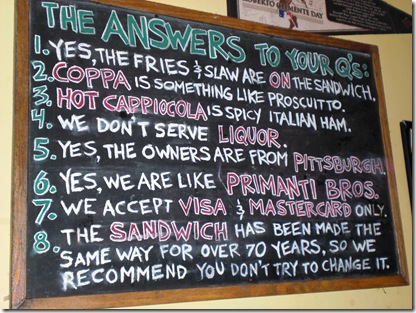 ROBERTO CLEMENTE DAY
THE ANSWERS TO YOUR Q'S:
1. YES, THE FRIES & SLAW ARE ON THE SANDWICH.
2. COPPA IS SOMETHING LIKE PROSCUITTO.
3. HOT CAPPIOCOLA IS SPICY ITALIAN HAM.
4. WE DON'T SERVE LIQUOR.
5. YES, THE OWNERS ARE FROM PITTSBURGH.
6. YES, WE ARE LIKE PRIMANTI BROS.
7. WE ACCEPT VISA & MASTERCARD ONLY.
8. THE SANDWICH HAS BEEN MADE THE
SAME WAY FOR OVER 70 YEARS, SO WE
RECOMMEND YOU DON'T TRY TO CHANGE IT.